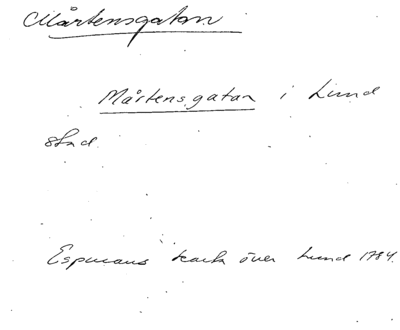 Mårtensgatan
Mårtensgatan i Lund
stad.
Espmans karta över Lund 1784.